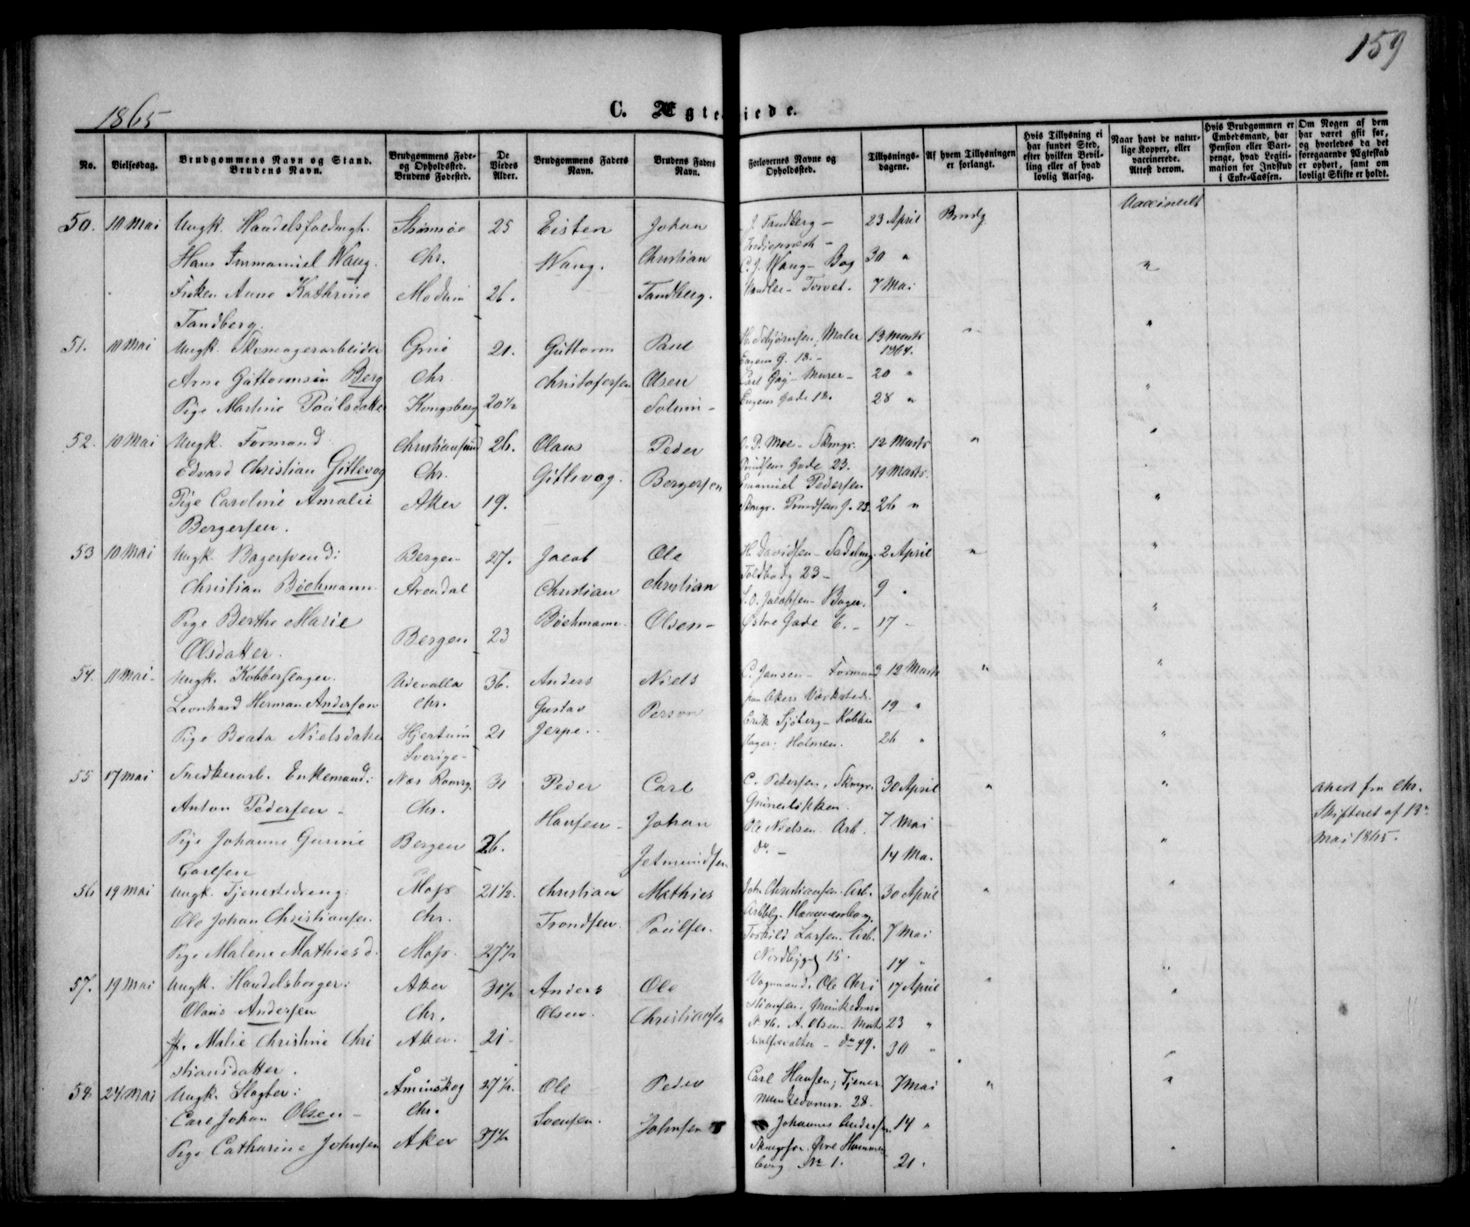 159
1865
C. Ægteviede.
No.
Vielsesdag.
Brudgommens Navn og Stand.
Brudens Navn.
Brudgommens Føde-
og Opholdssted.
Brudens Fødested.
De
Viedes
Alder.
Brudgommens Faders
Navn.
Brudens Faders
Navn.
Forlovernes Navne og
Opholdssted.
Tillysnings-
dagene.
Af hvem Tillysningen
er forlangt.
Hvis Tillysning ei
har fundet Sted,
efter hvilken Bevil-
ling eller af hvad
lovlig Aarsag.
Naar havt de natur-
lige Kopper, eller
vaccinerede.
Attest derom.
Hvis Brudgommen er
Embedsmand, har
Pension eller Vart-
penge, hvad Legiti-
mation for Indskud
i Enke-Cassen.
Om Nogen af dem
har været gift før,
og hvorledes da det
foregaaende Ægteskab
er ophørt, samt om
lovligt Skifte er holdt.
50. 10 Mai Ungk. 25 Eisten Johan J. Tandberg 23 April Brudg
Hans Immanuel Wang. Chr. Wang. Christian C. J. Wang - Bog 30 "
Frøken Anne Kathrine Modum 26. Tandberg. handler - Torvet. 7 Mai
Tandberg.
51. 10 Mai Ungk. Skomagerarbeider 21. Guttorm Poul Maler 13 Marts
1864.
Arne Guttormsen Berg Chr. Christofersen Olsen Murer 20 "
Pige Martine Poulsdatter Kongsberg 20½ Solum 28 "
52. 10 Mai Ungk. Formand Christiansund 26. Olaus Peder O. P. Moe - Skomgr. 12 Marts "
Edvard Christian Gitlevog Chr. Gitlevog. Bergersen Gade 23. 19 Marts
Emanuel Pedersen
Pige Caroline Amalie Aker 19. 26 "
Bergersen.
53 10 Mai Ungk. Bagersvend: Bergen 27. Jacob Ole H. Davidsen - Sadelmg. 2 April "
Toldbodg 23 -
Christian Bøchmann Arendal Christian Christian Jacobsen Bager. 9 "
Pige Berthe Marie Bergen 23 Bøchmann Olsen Østre Gade 6. 17 -
Olsdatter.
54. 11 Mai Ungk. Kobberslager. Udevalla 36. Anders Niels C. Jansen - Formand 12 Marts "
Leonhard Herman Anderson Chr. Gustav Person paa Akers Værksted 19 "
Erik Sjöberg - Kobber
Pige Beata Nielsdatter Hjertum 21 Jerpe. slager. Holmen. 26 "
Sverige
55 17 Mai Snedkerarb. Enkemand: Næs Romrg. 31 Peder Carl C. Pedersen, Skmgr. 30 April " skedt fra Chr.
Anton Pedersen Chr. Hansen Johan Grünerløkken 7 Mai Skifteret af 13
Ole Nielsen Arb. Mai 1865.
Pige Johanne Gurine Bergen 26. Jetmundsen do. - 14 Ma.
Carlsen
56 19 Mai Ungk. Tjenestedreng: Moss 21½ Christian Mathies Joh. Christiansen Arb. 30 April "
Ole Johan Christiansen. Chr. Trondsen Poulsen. Hammersborg 7 Mai
Torkild Larsen Arb.
Pige Malene Mathiesd. Moss. 27½ Nordbygd 15. 14 "
57. 19 Mai Ungk. Handelsborger: Aker 30½ Anders Ole Vognmand, Ole Chri 17 April "
Olaus Andersen Chr. Olsen. Christiansen stiansen, Munkedams
A. Olsen 23 "
P. Malie Christine Chri Aker. 21 do 49. 30 "
stiansdatter.
58. 24 Mai Ungk. Slagter: Åminskog 27½ Ole Peder Carl Hansen, Tjener 7 Mai "
Carl Johan Olsen - Chr. Svensen. Johnsen Munkedamsv. 28.
Johannes Andersen 14 "
Pige Catharine Johnsen Aker 37½ Øvre Hammers
borg No 1. 21.
Vaccineret